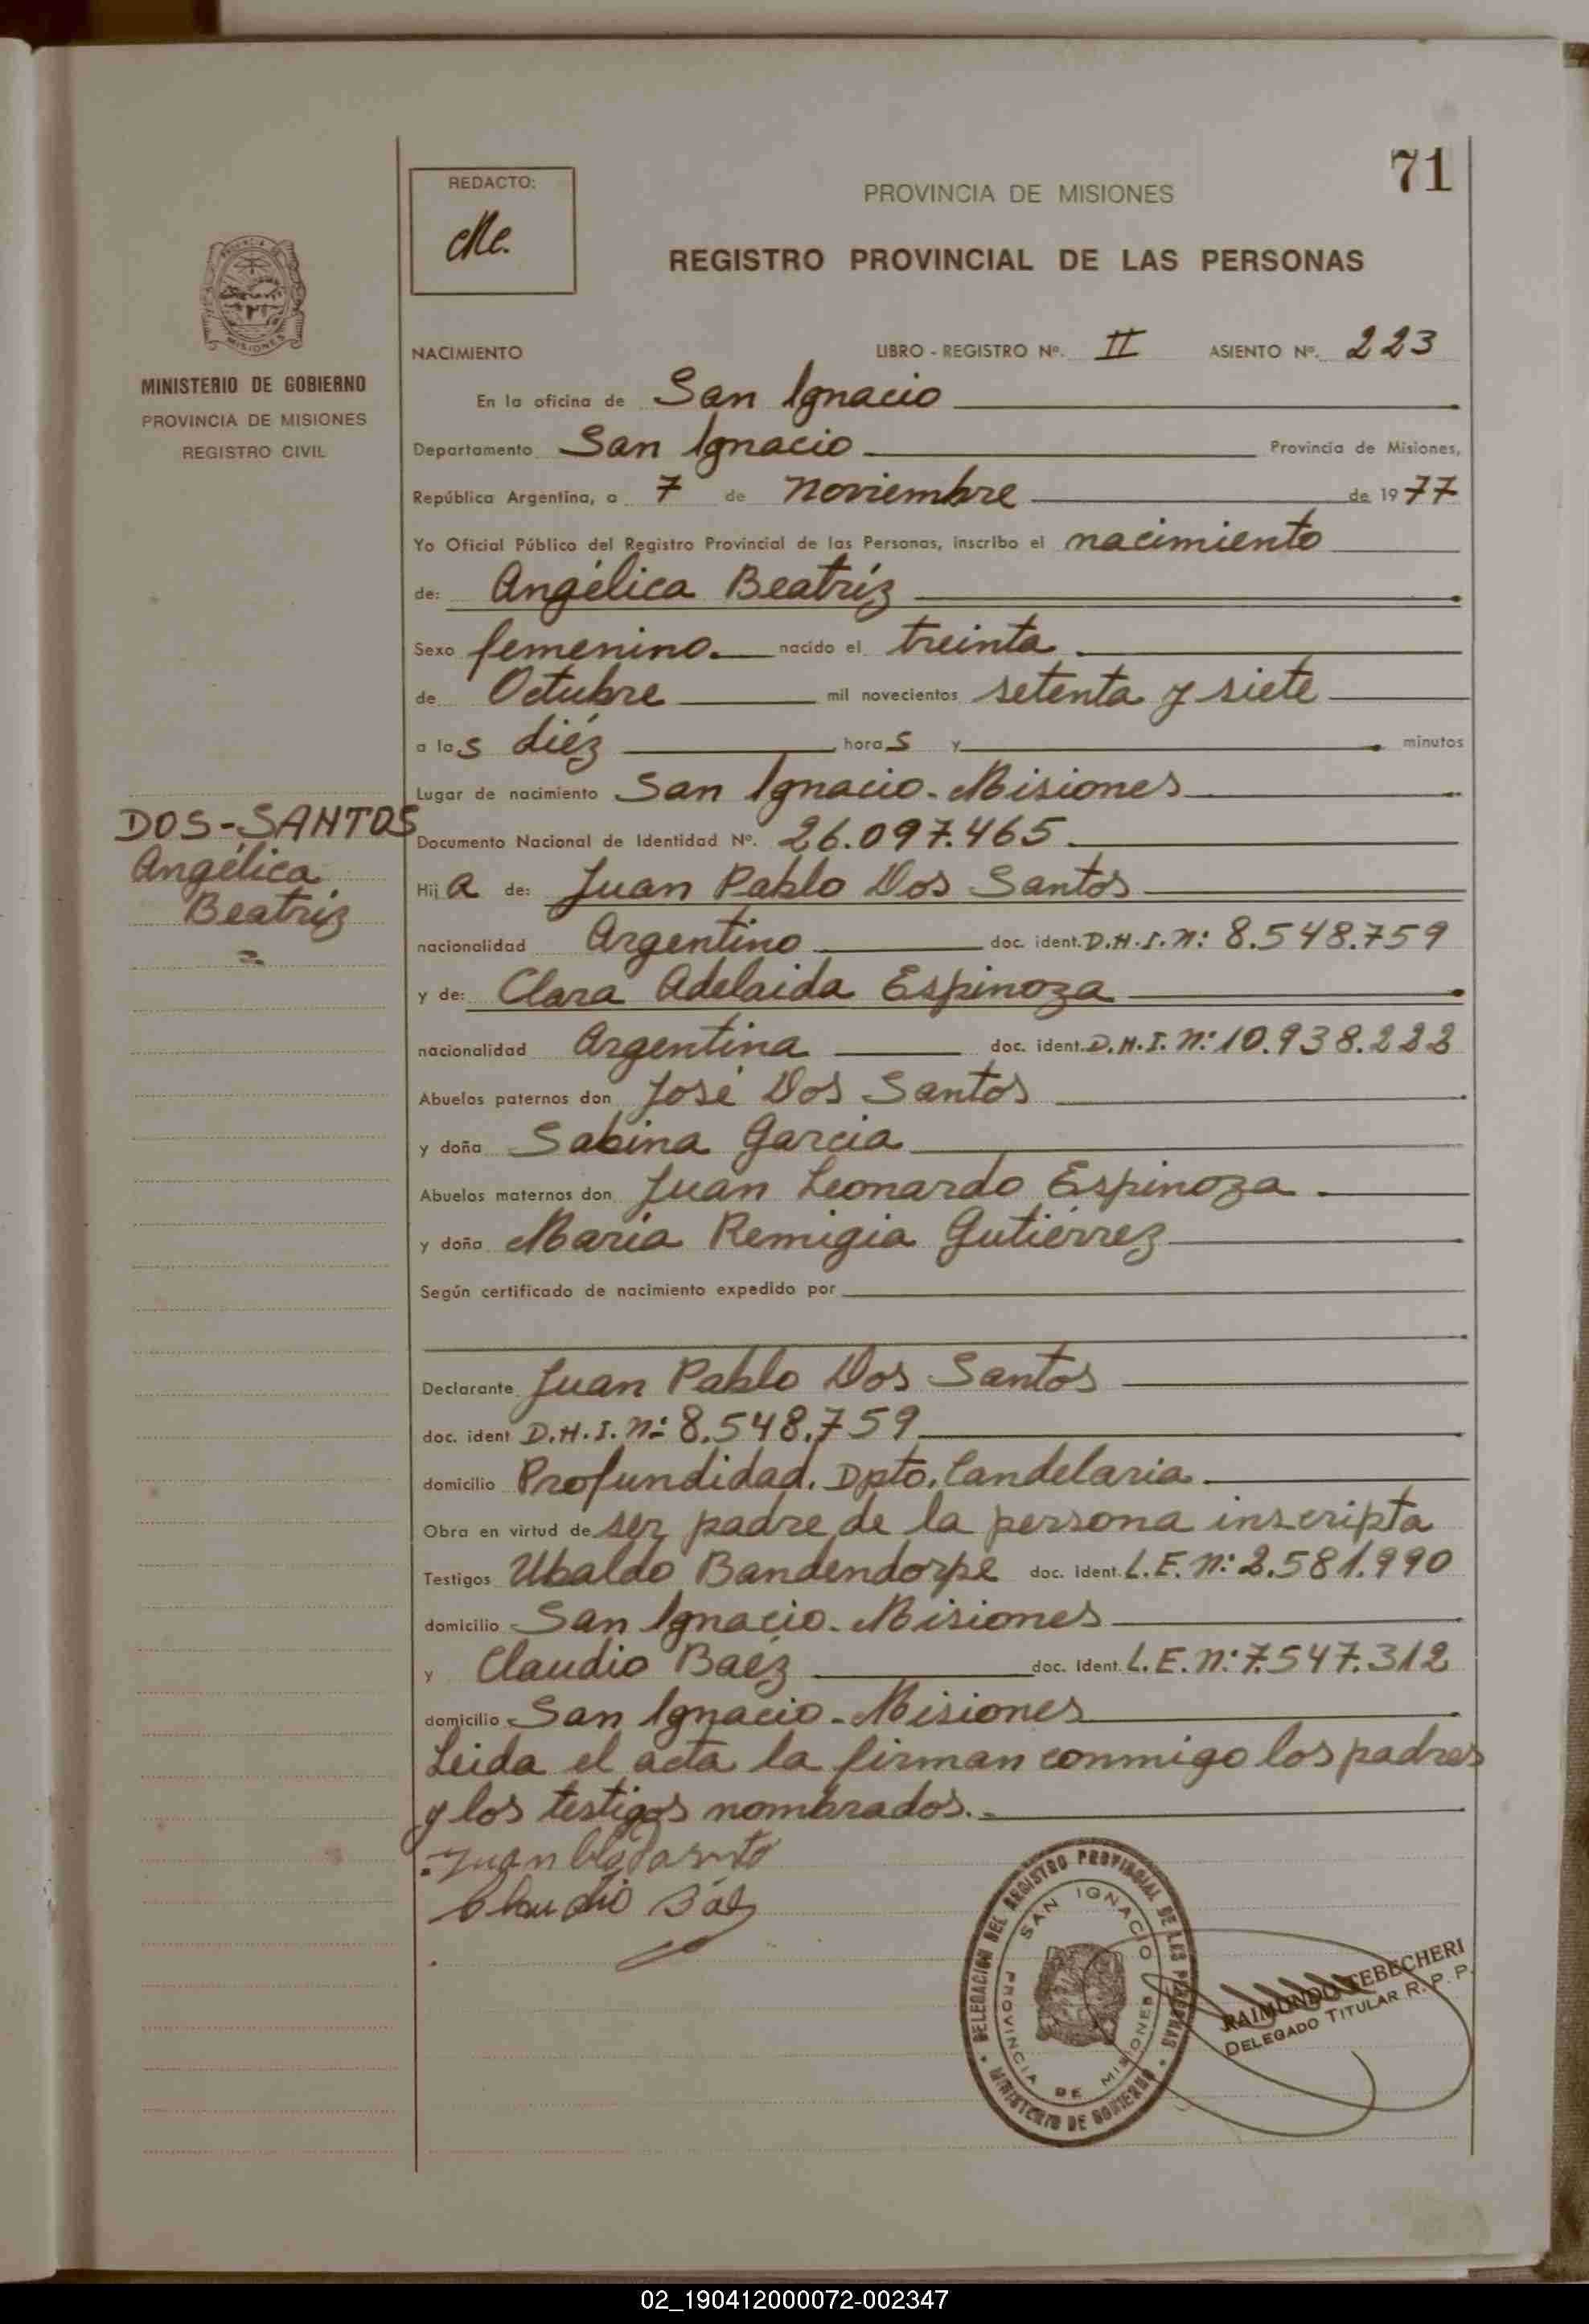 71
REDACTO:
Me.
PROVINCIA DE MISIONES
REGISTRO PROVINCIAL DE LAS PERSONAS
MISIONES
MINISTERIO DE GOBIERNO
PROVINCIA DE MISIONES
REGISTRO CIVIL
NACIMIENTO LIBRO - REGISTRO Nº. II ASIENTO Nº. 223
En la oficina de San Ignacio
Departamento San Ignacio Provincia de Misiones,
República Argentina, a 7 de Noviembre de 1977
Yo Oficial Público del Registro Provincial de las Personas, inscribo el nacimiento
de: Angélica Beatríz
Sexo femenino. nacido el treinta
de Octubre mil novecientos setenta y siete
a las diéz horas y minutos
Lugar de nacimiento San Ignacio - Misiones
DOS-SANTOS
Angélica
Beatríz
Documento Nacional de Identidad Nº. 26.097.465
Hija de: Juan Pablo Dos Santos
nacionalidad Argentino doc. ident. D.N.I. n: 8.548.759
y de: Clara Adelaida Espinoza
nacionalidad Argentina doc. ident. D.N.I. n: 10.938.222
Abuelos paternos don José Dos Santos
y doña Sabina Garcia
Abuelos maternos don Juan Leonardo Espinoza
y doña María Remigia Gutiérrez
Según certificado de nacimiento expedido por
Declarante Juan Pablo Dos Santos
doc. ident D.N.I. n: 8.548.759
domicilio Profundidad. Dpto. Candelaria
Obra en virtud de ser padre de la persona inscripta
Testigos Ubaldo Bandendorpe doc. ident. L.E. n: 2.581.990
domicilio San Ignacio - Misiones
y Claudio Baéz doc. ident. L.E. n: 7.547.312
domicilio San Ignacio - Misiones
Leida el acta la firman conmigo los padres
y los testigos nombrados.
Claudio Báez
DELEGACION DEL REGISTRO PROVINCIAL DE LAS PERSONAS
MINISTERIO DE GOBIERNO
SAN IGNACIO
PROVINCIA DE MISIONES
RAIMUNDO TEBECHERI
DELEGADO TITULAR R. P. P.
02_190412000072-002347